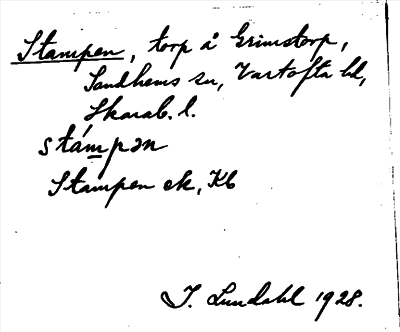 Stampen, torp å Grimstorp,
Sandhems sn, Vartofta hd,
Skarab. l.
stámpən
Stampen ek, Kb
I. Lundahl 1928.